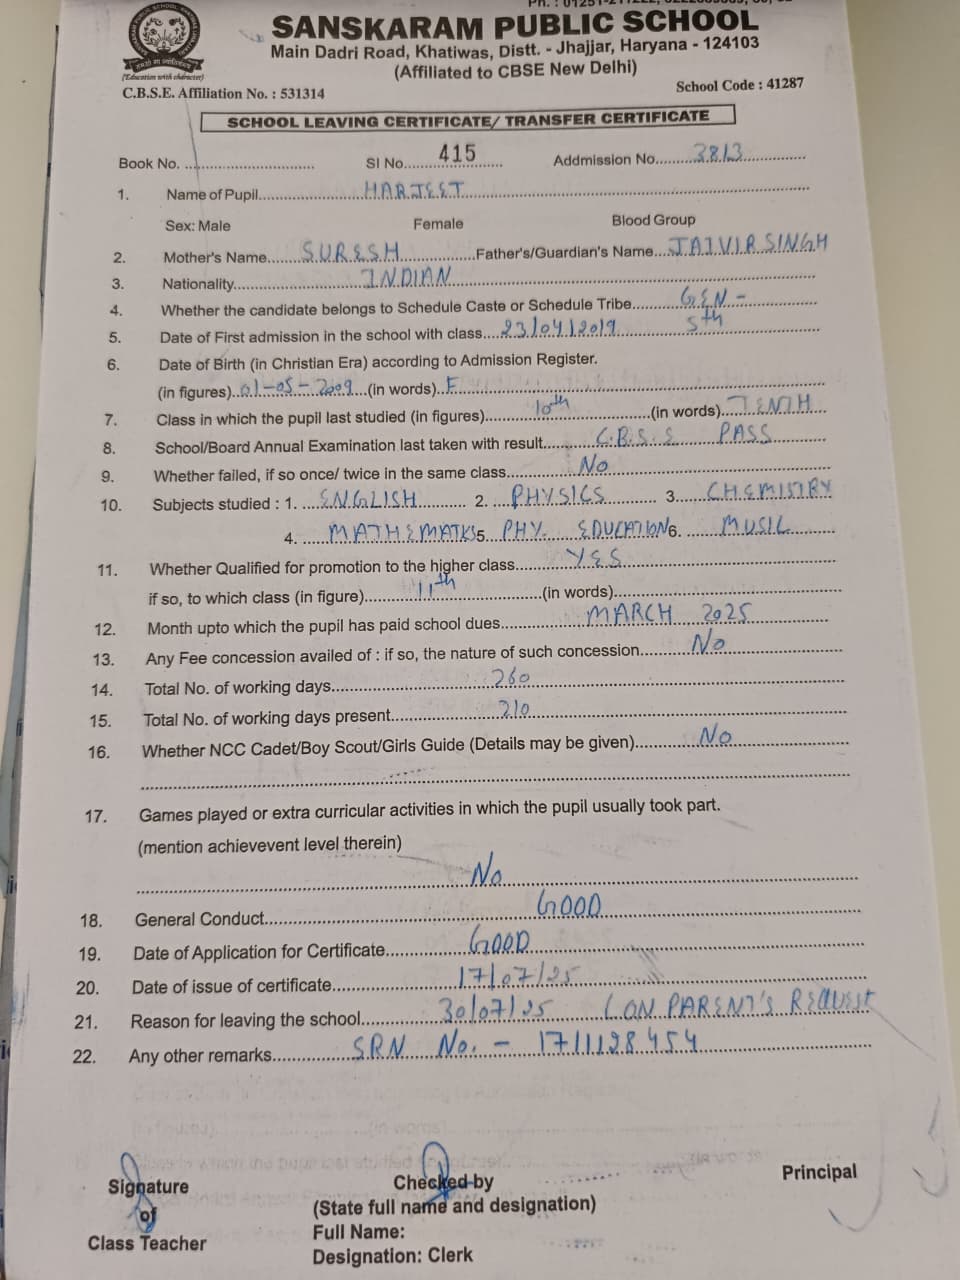 SANSKARAM PUBLIC SCHOOL
Main Dadri Road, Khatiwas, Distt. - Jhajjar, Haryana - 124103
(Affiliated to CBSE New Delhi)
(Education with character)
C.B.S.E. Affiliation No. : 531314 School Code : 41287
SCHOOL LEAVING CERTIFICATE/ TRANSFER CERTIFICATE
Book No. ............ SI No. 415 Addmission No. 3813
1. Name of Pupil HARJEET
Sex: Male Female Blood Group
2. Mother's Name SURESH Father's/Guardian's Name JAIVIR SINGH
3. Nationality INDIAN
4. Whether the candidate belongs to Schedule Caste or Schedule Tribe GEN -
5. Date of First admission in the school with class 23/04/2019 5th
6. Date of Birth (in Christian Era) according to Admission Register.
(in figures) 01-05-2009 (in words) F
7. Class in which the pupil last studied (in figures) 10th (in words) TENTH
8. School/Board Annual Examination last taken with result C.B.S.E PASS
9. Whether failed, if so once/ twice in the same class No
10. Subjects studied : 1. ENGLISH 2. PHYSICS 3. CHEMISTRY
4. MATHEMATKS 5. PHY. EDUCATION 6. MUSIC
11. Whether Qualified for promotion to the higher class YES
if so, to which class (in figure) 11th (in words)
12. Month upto which the pupil has paid school dues MARCH 2025
13. Any Fee concession availed of : if so, the nature of such concession No
14. Total No. of working days 260
15. Total No. of working days present 210
16. Whether NCC Cadet/Boy Scout/Girls Guide (Details may be given) No
17. Games played or extra curricular activities in which the pupil usually took part.
(mention achievevent level therein)
No
18. General Conduct GOOD
19. Date of Application for Certificate GOOD
20. Date of issue of certificate 17/07/25
21. Reason for leaving the school 30/07/25 ON PARENT'S REQUEST
22. Any other remarks SRN No. - 1711128454
Signature Checked by Principal
of (State full name and designation)
Class Teacher Full Name:
Designation: Clerk